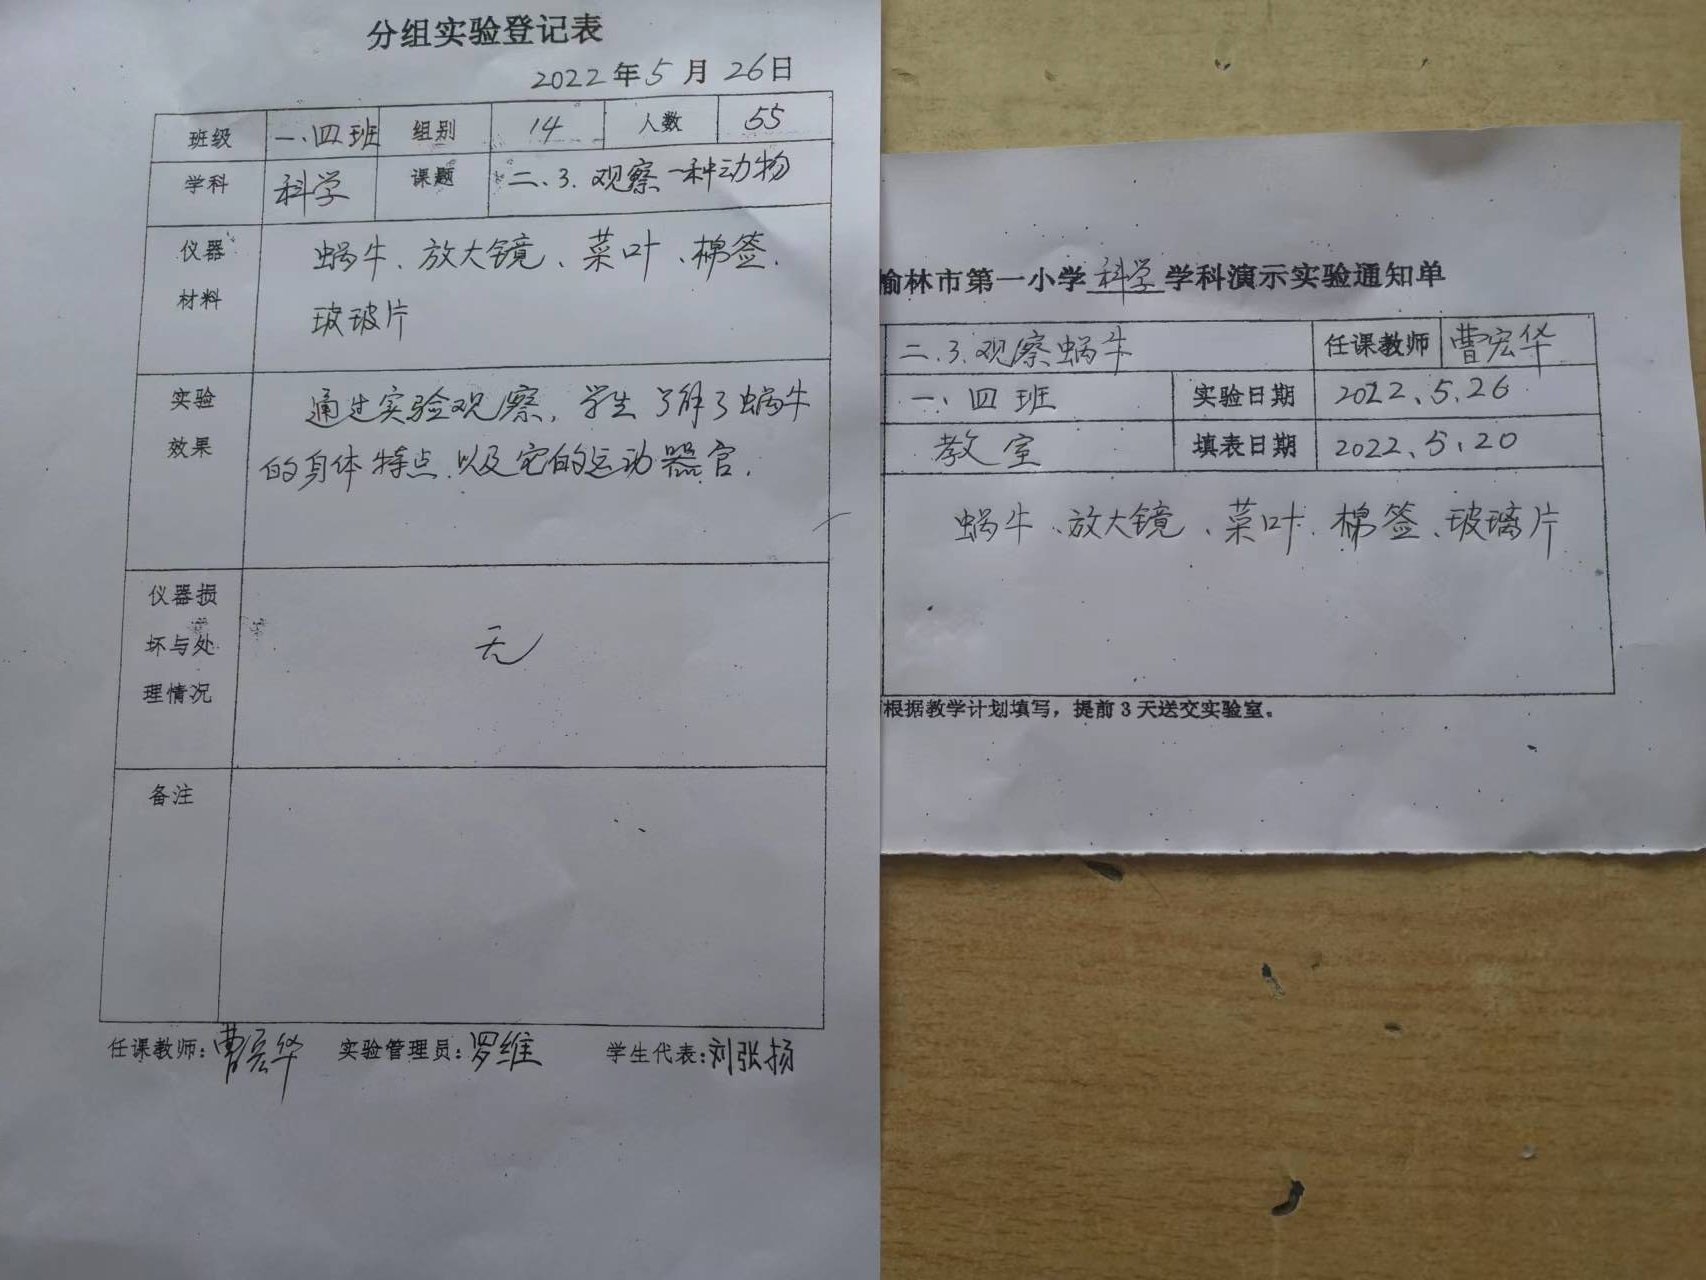 分组实验登记表
2022年5月26日
班级 一、四班 组别 14 人数 55
学科 科学 课题 二、3.观察一种动物
仪器材料 蜗牛、放大镜、菜叶、棉签、
玻玻片
实验效果 通过实验观察,学生了解了蜗牛
的身体特点以及它的运动器官.
仪器损坏与处理情况 无
备注
任课教师:曹宏华 实验管理员:罗维 学生代表:刘张扬
榆林市第一小学科学学科演示实验通知单
二.3.观察蜗牛 任课教师 曹宏华
一、四班 实验日期 2022、5.26
教室 填表日期 2022、5.20
蜗牛、放大镜、菜叶、棉签、玻璃片
根据教学计划填写,提前3天送交实验室。